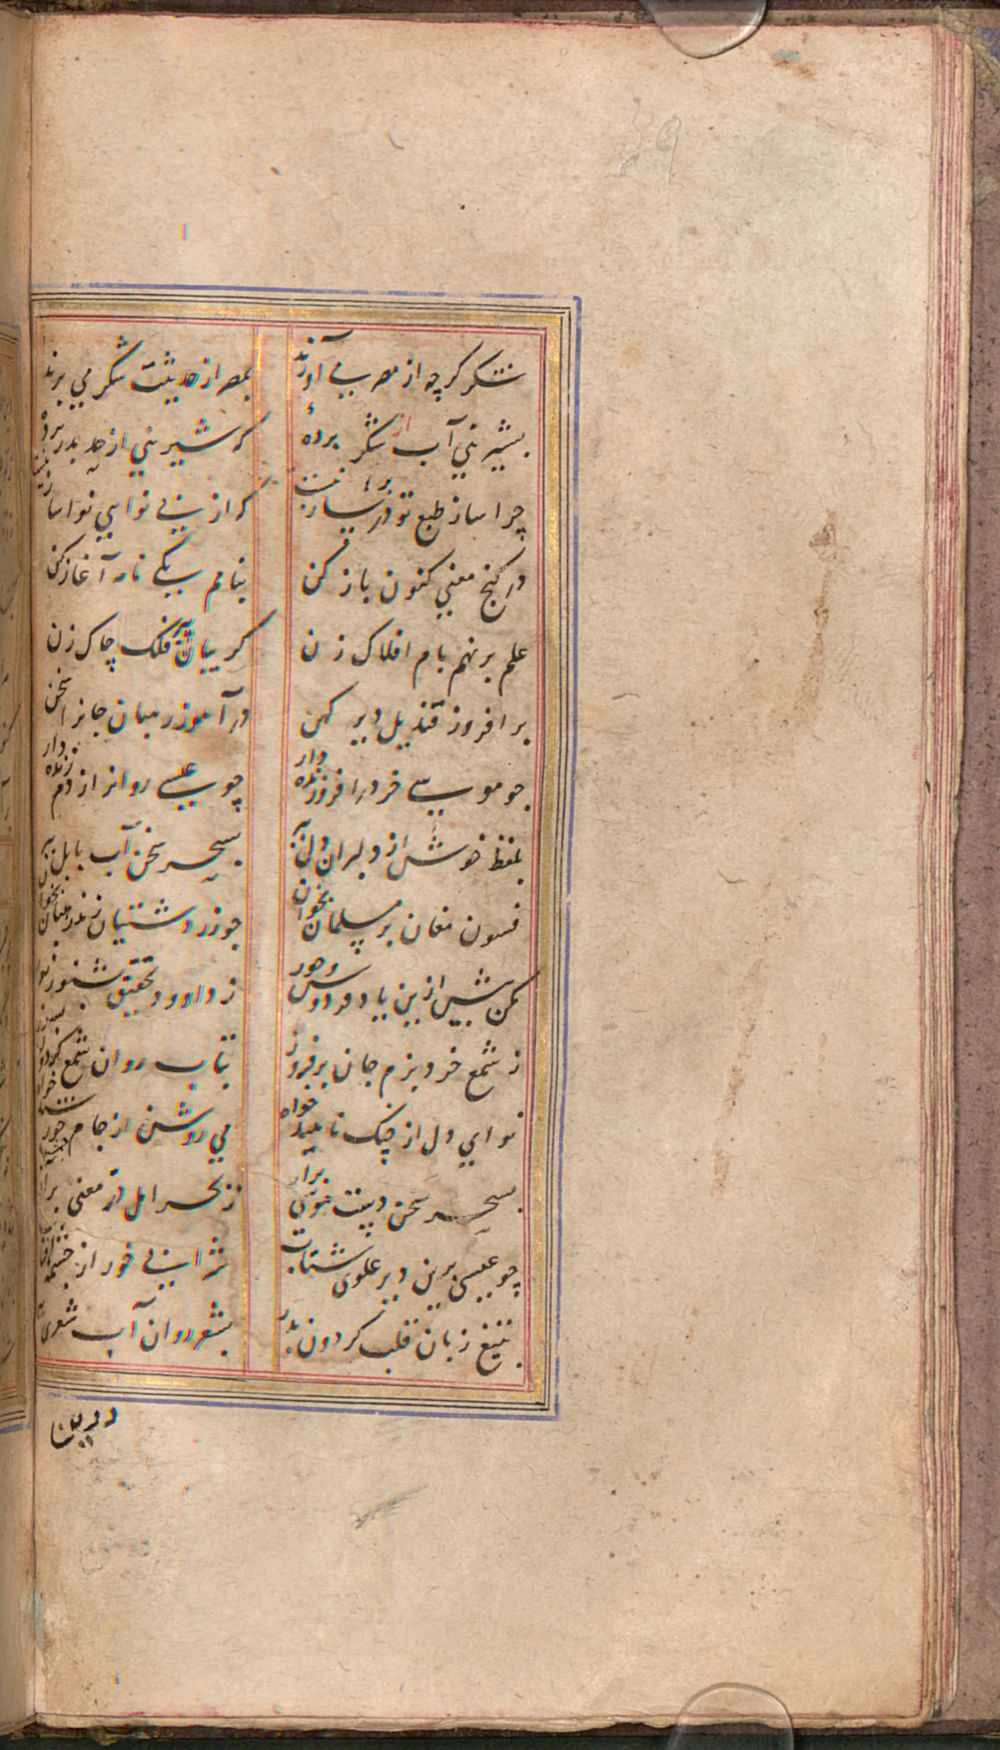 شکر کرچه از مصر می آورند بمصر از حدیثت شکر می برند
بشیرینی آب از شکر بردهٔ که شیرینی از حد بدر بردهٔ
چرا ساز طبع تو بر ساز نیست که از بی نوایی نوا ساز نیست
در کنج معنی کنون باز کن بنامم یکی نامه آغاز کن
علم بر نهم بام افلاک زن کریبان نه فلک چاک زن
برافروز قندیل دیر کهن درآموز رهبان جانرا سخن
چو موسی خرد را فروزنده دار چو عیسی روانرا ز دم زنده دار
بلفظ خوش از دلبران دل ببر بسحر سخن آب بابل ببر
فسون مغان بر مسلمان بخوان چو زردشتیان زند رهبان بخوان
مکن بیش ازین یاد فردوس و حور ز داوود تحقیق بشنو زبور
ز شمع خرد بزم جان برفروز بتاب روان شمع کردون بسوز
نوای دل از چنک ناهید خواه می روشن از جام خورشید خواه
بسحر سخن دست موسی برار ز بحر امل در معنی برار
چو عیسی برین دیر علوی شتاب شرابی خور از چشمه آفتاب
بتیغ زبان قلب کردون بدر بشعر روان آب شعری ببر
درین